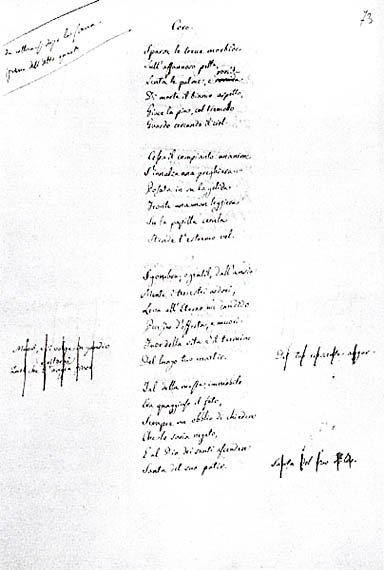 73
da collocarsi dopo la scena
prima dell'atto quarto
Coro.
Sparsa le trecce morbide
Sull'affannoso petto,
Lenta le palme, e rorida
Di morte il bianco aspetto,
Giace la pia, col tremolo
Guardo cercando il ciel.
Cessa il compianto: unanime
S'innalza una preghiera:
Calata in su la gelida
Fronte una man leggiera
Su la pupilla cerula
Stende l'estremo vel.
Sgombra, o gentil, dall'ansia
Mente i terrestri ardori;
Leva all'Eterno un candido
Pensier d'offerta, e muori:
Fuor della vita è il termine
Del lungo tuo martir.
Tal della mesta, immobile
Era quaggiuso il fato,
Sempre un obblio di chiedere
Che le saria negato,
E al Dio dei santi ascendere
Santa del suo patir.